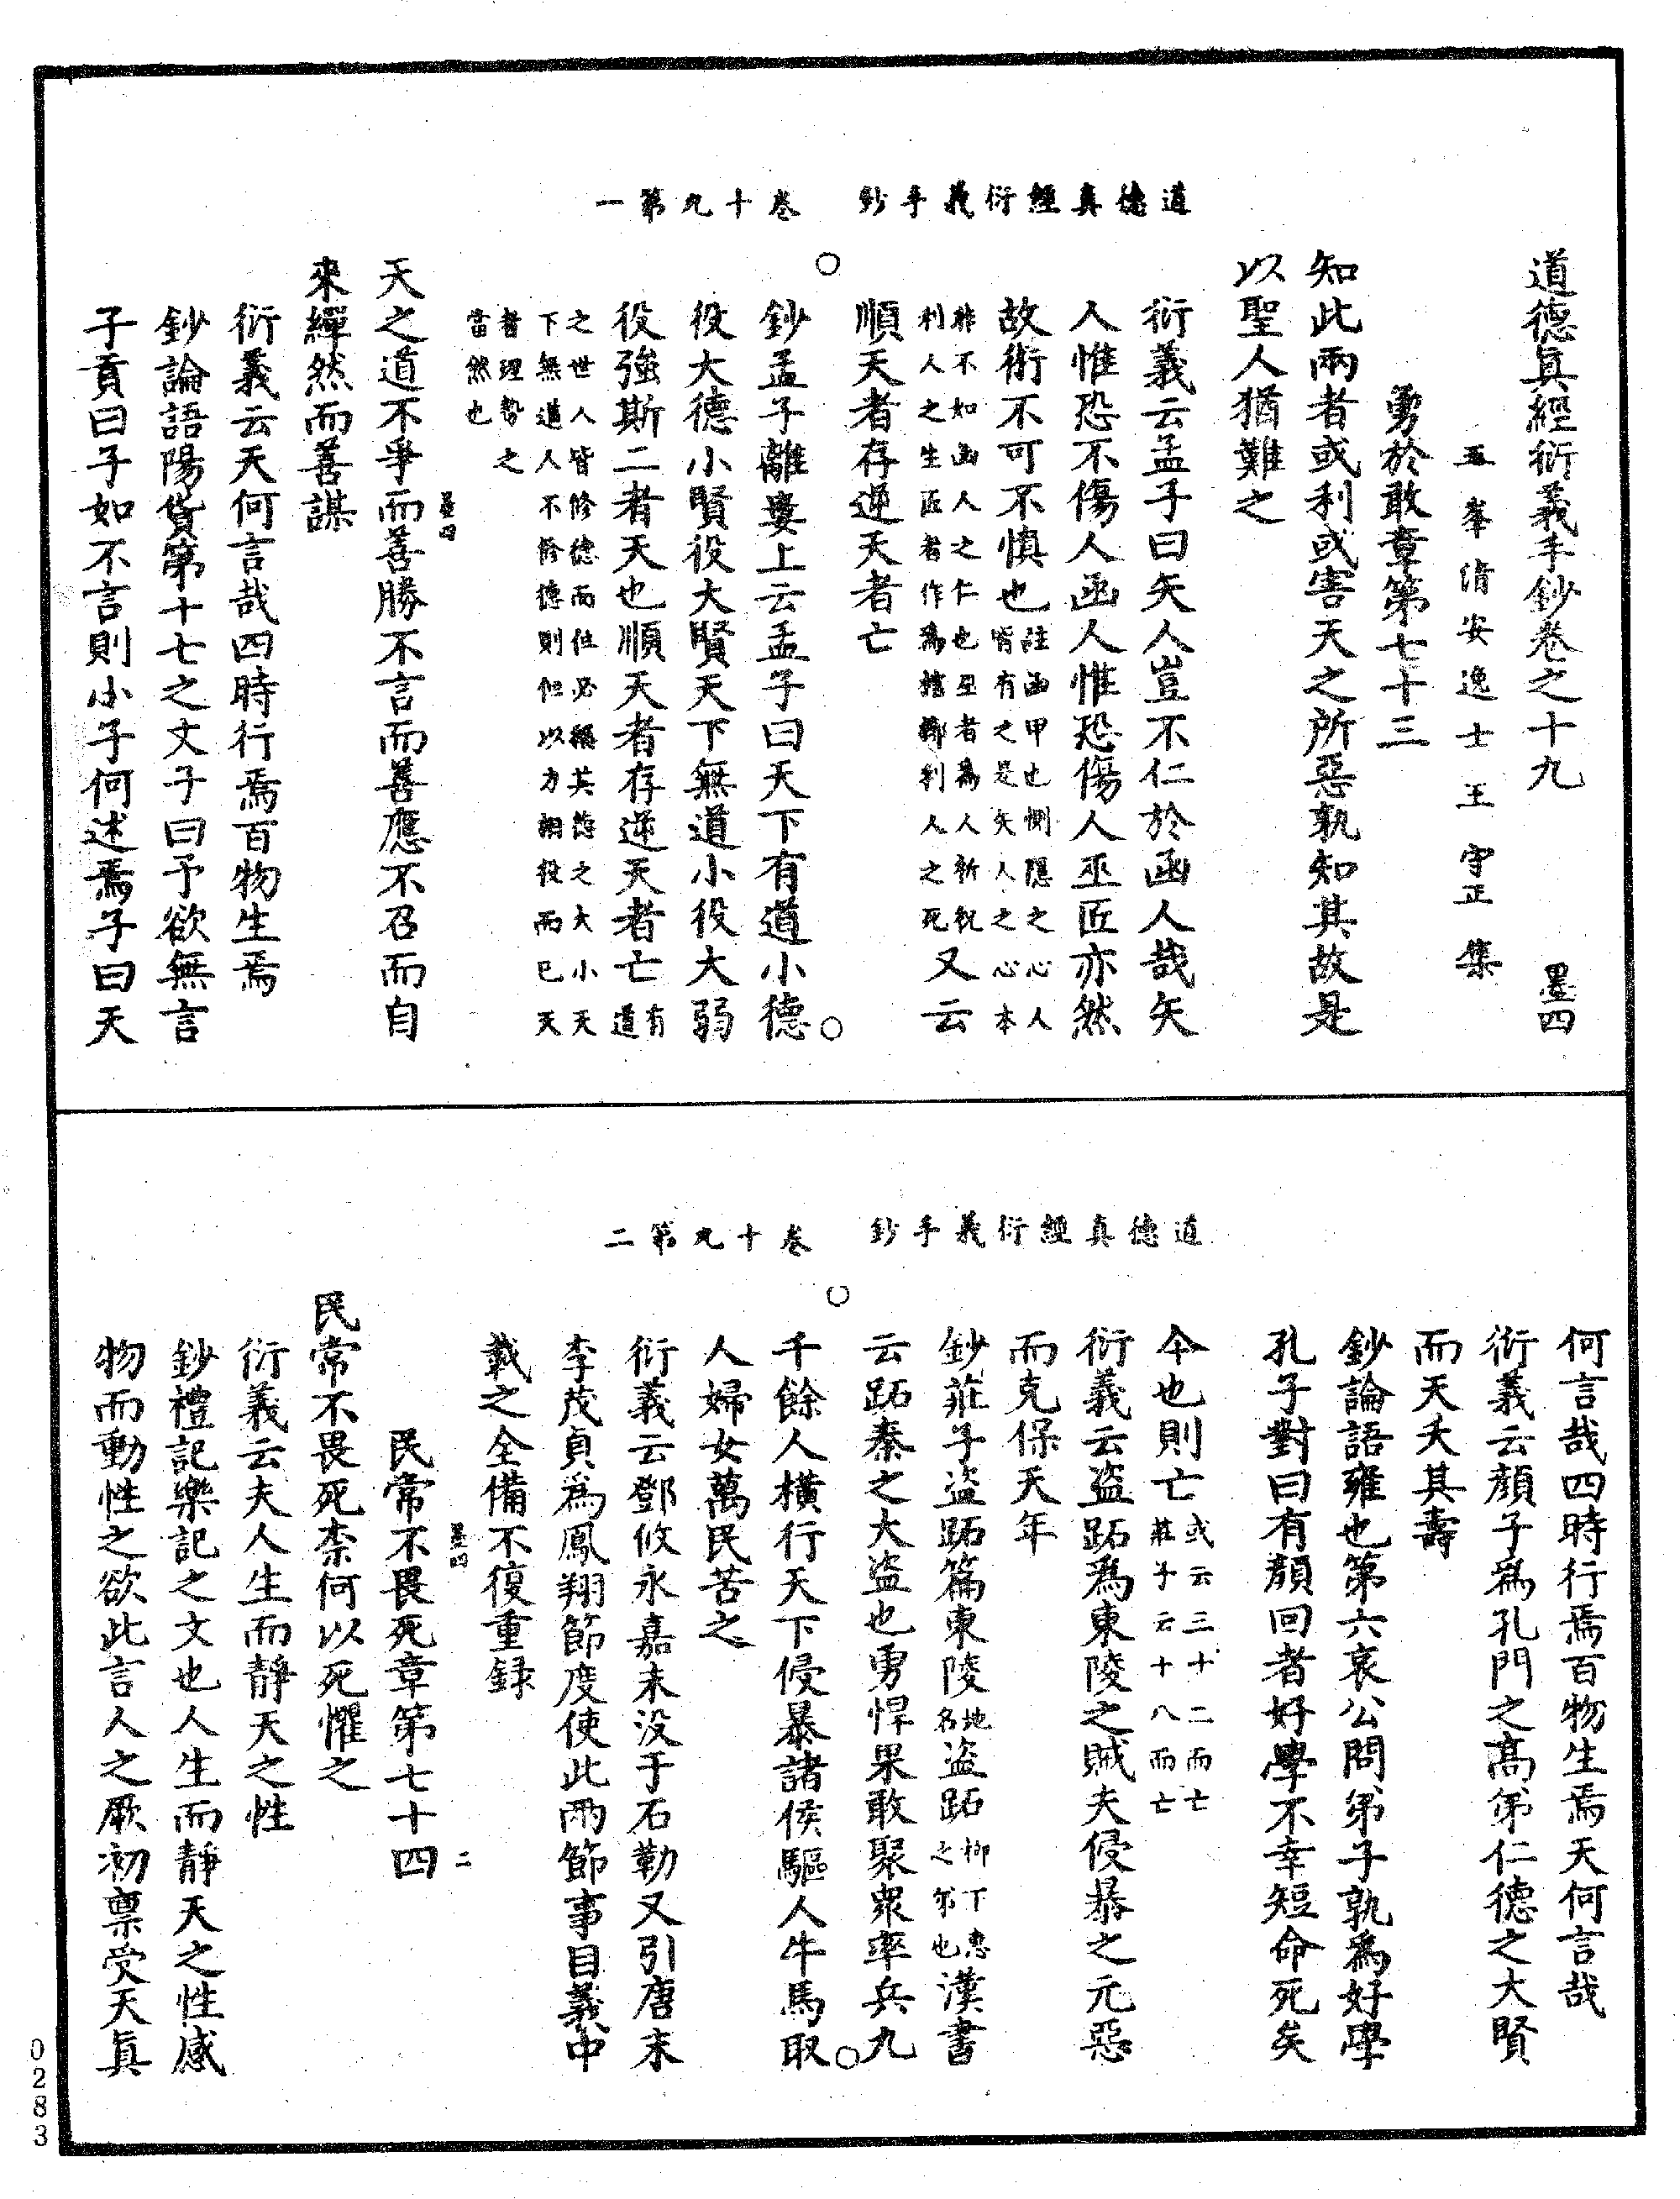 道德真經衍義手鈔　卷十九第一
道德真經衍義手鈔卷之十九　墨四
五峯清安逸士王守正集
勇於敢章第七十三
知此兩者或利或害天之所惡孰知其故是
以聖人猶難之
衍義云孟子曰矢人豈不仁於函人哉矢
人惟恐不傷人函人惟恐傷人巫匠亦然
故術不可不慎也註函甲也惻隱之心人
皆有之是矢人之心本
非不如函人之仁也巫者為人祈祝
利人之生匠者作為棺槨利人之死又云
順天者存逆天者亡
鈔孟子離婁上云孟子曰天下有道小德
役大德小賢役大賢天下無道小役大弱
役強斯二者天也順天者存逆天者亡有
道
之世人皆修德而位必稱其德之大小天
下無道人不修德則但以力相役而已天
者理勢之
當然也
墨四
天之道不爭而善勝不言而善應不召而自
來繟然而善謀
衍義云天何言哉四時行焉百物生焉
鈔論語陽貨第十七之文子曰予欲無言
子貢曰子如不言則小子何述焉子曰天
道德真經衍義手鈔　卷十九第二
何言哉四時行焉百物生焉天何言哉
衍義云顏子為孔門之高弟仁德之大賢
而天夭其壽
鈔論語雍也第六哀公問弟子孰為好學
孔子對曰有顏回者好學不幸短命死矣
今也則亡或云三十二而亡
莊子云十八而亡
衍義云盜跖為東陵之賊夫侵暴之元惡
而克保天年
鈔莊子盜跖篇東陵地
名盜跖柳下惠
之弟也漢書
云跖秦之大盜也勇悍果敢聚眾率兵九
千餘人橫行天下侵暴諸侯驅人牛馬取
人婦女萬民苦之
衍義云鄧攸永嘉末没于石勒又引唐末
李茂貞為鳳翔節度使此兩節事目義中
載之全備不復重録
墨四　二
民常不畏死章第七十四
民常不畏死柰何以死懼之
衍義云夫人生而靜天之性
鈔禮記樂記之文也人生而靜天之性感
物而動性之欲此言人之厥初稟受天真
0283